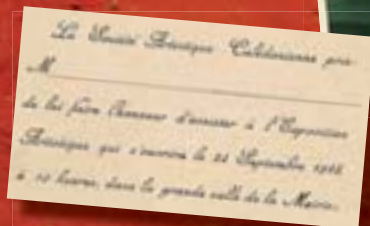 La Société Artistique Calédonienne prie
M
de lui faire l'honneur d'assister à l'Exposition
Artistique qui s'ouvrira le 24 Septembre
à 10 heures, dans la grande salle de la Mairie.